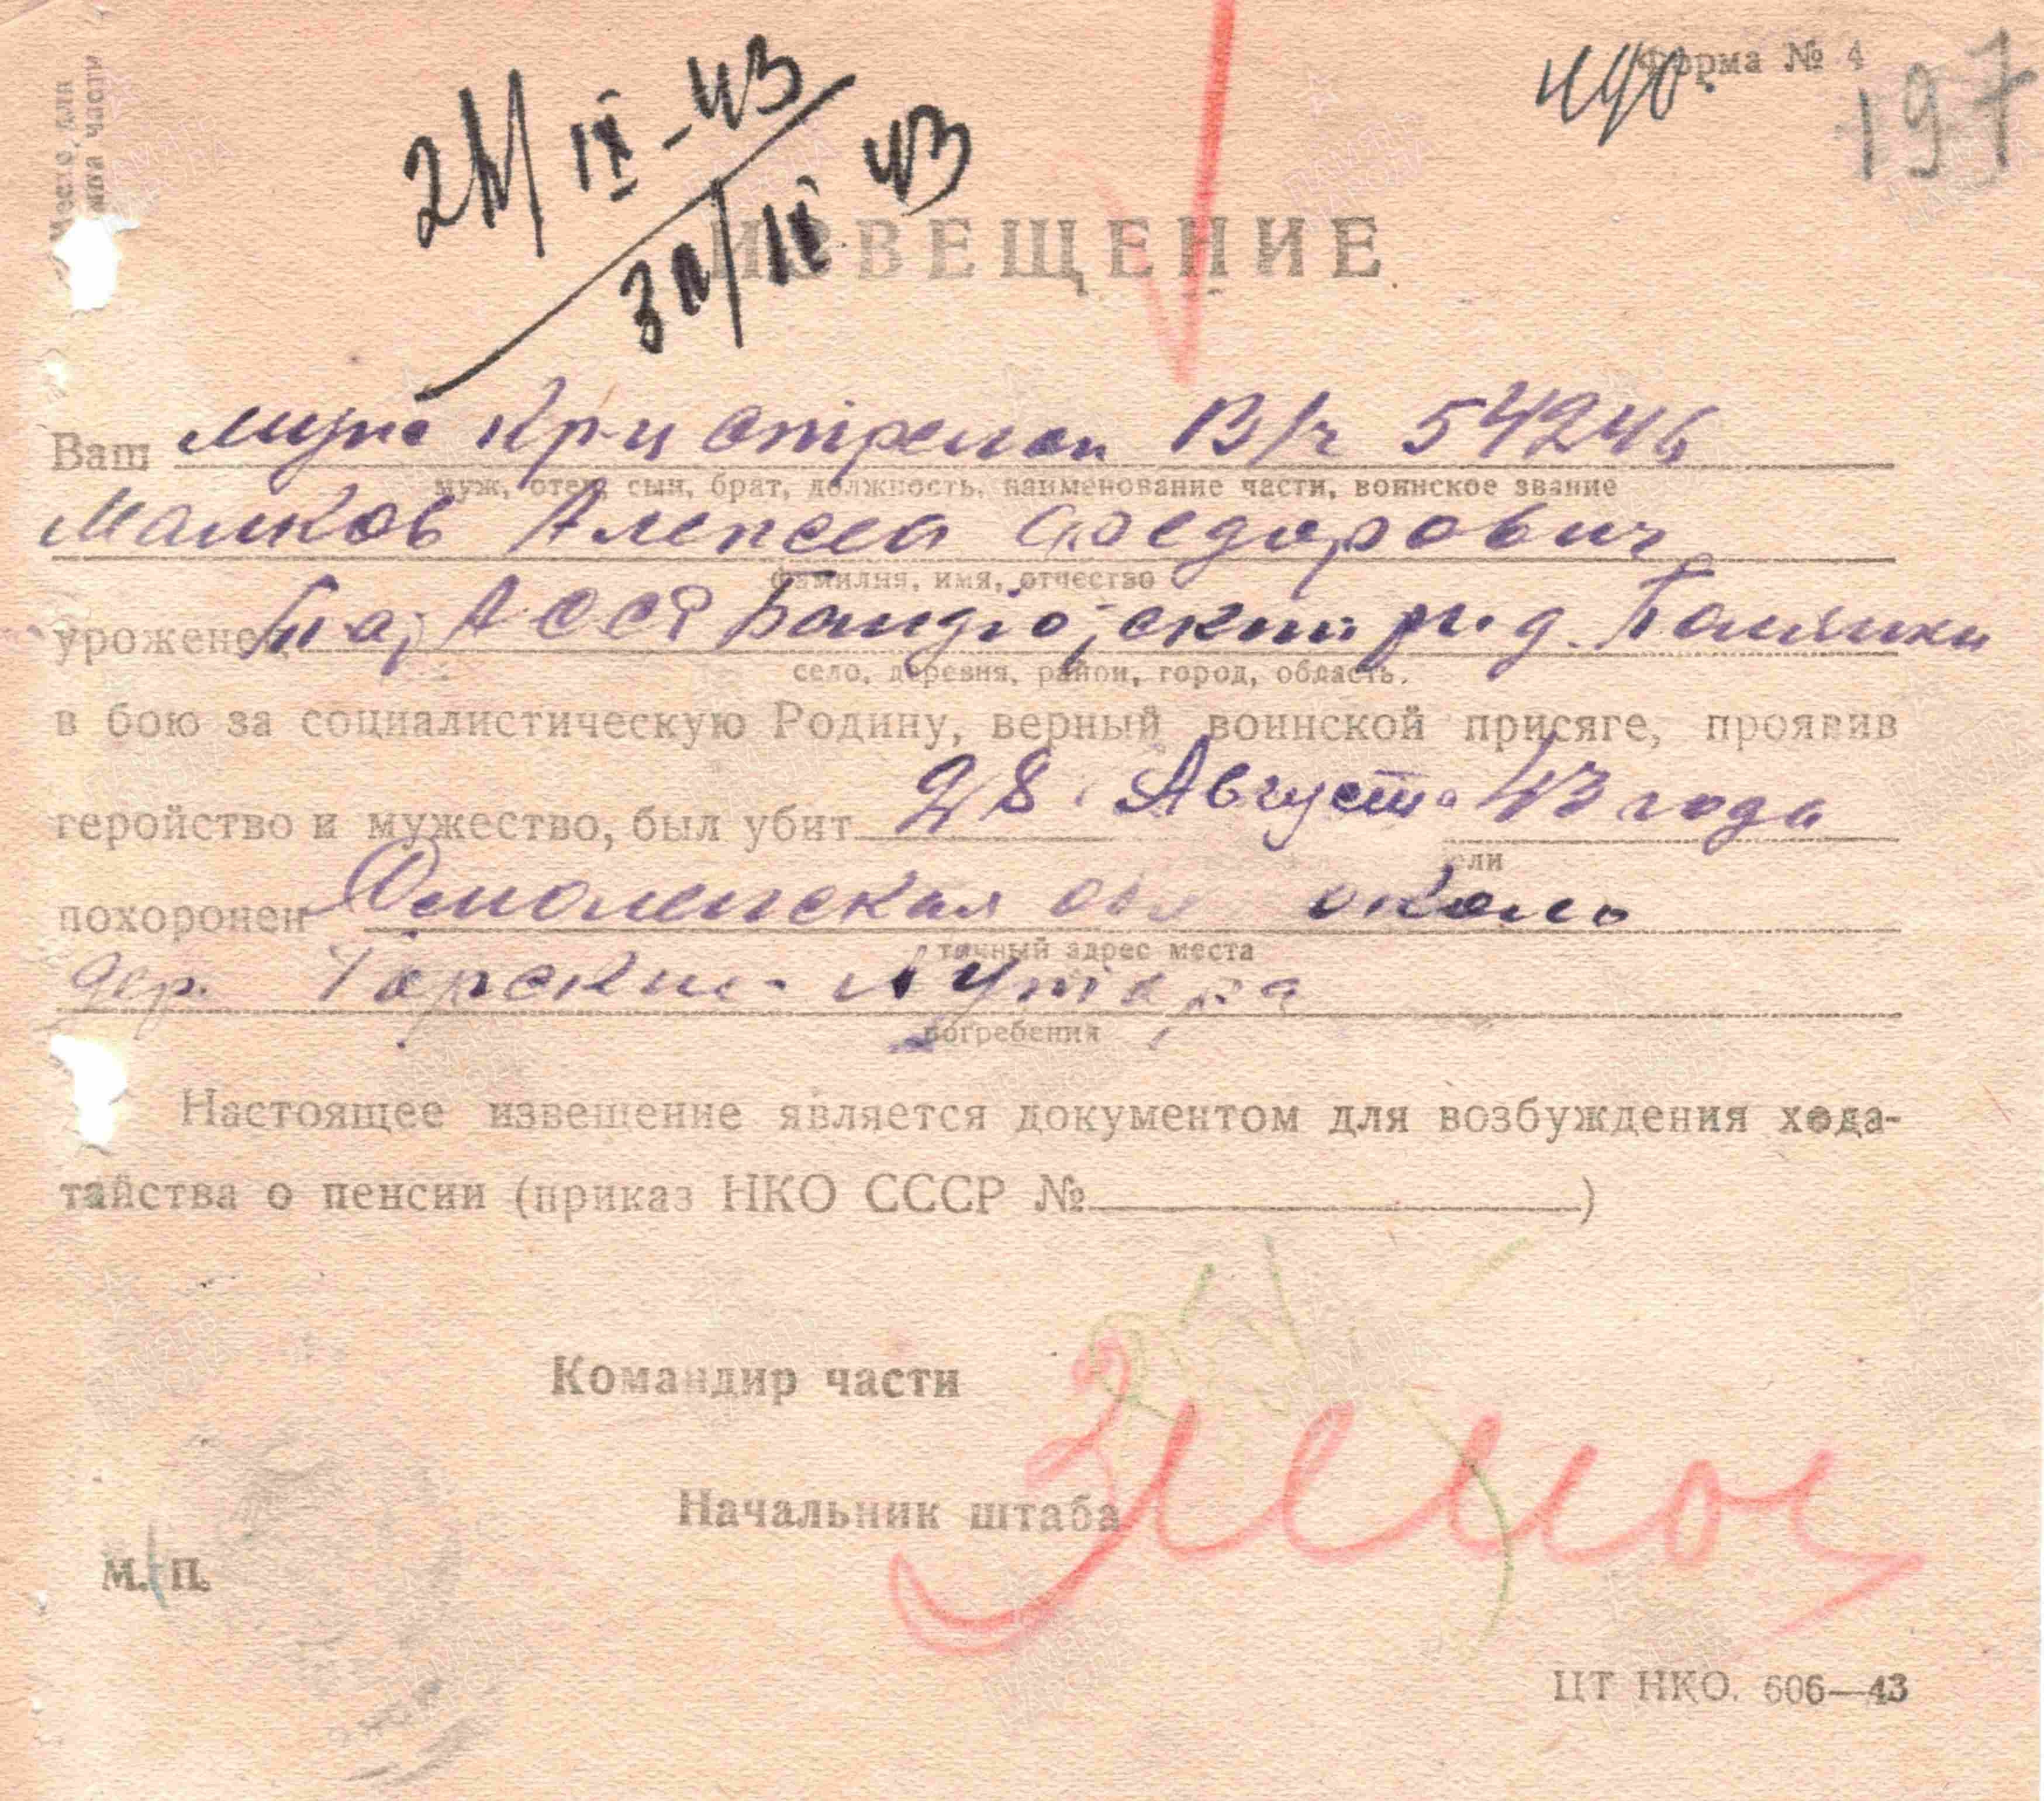 Место для
штампа части
Форма № 4
490.
197
21/IX-43
30/IX 43
ИЗВЕЩЕНИЕ
Ваш муж кр-ц стрелок В/ч 54246
муж, отец, сын, брат, должность, наименование части, воинское звание
Малков Алексей Федорович
фамилия, имя, отчество
уроженец Тат АССР р-н д.
село, деревня, район, город, область.
в бою за социалистическую Родину, верный воинской присяге, проявив
геройство и мужество, был убит 28 Августа 43 года
или
похоронен Смоленская обл около
точный адрес места
дер. Хутора
погребения
Настоящее извещение является документом для возбуждения хода-
тайства о пенсии (приказ НКО СССР № )
Командир части
Начальник штаба
М. П.
ЦТ НКО. 606—43